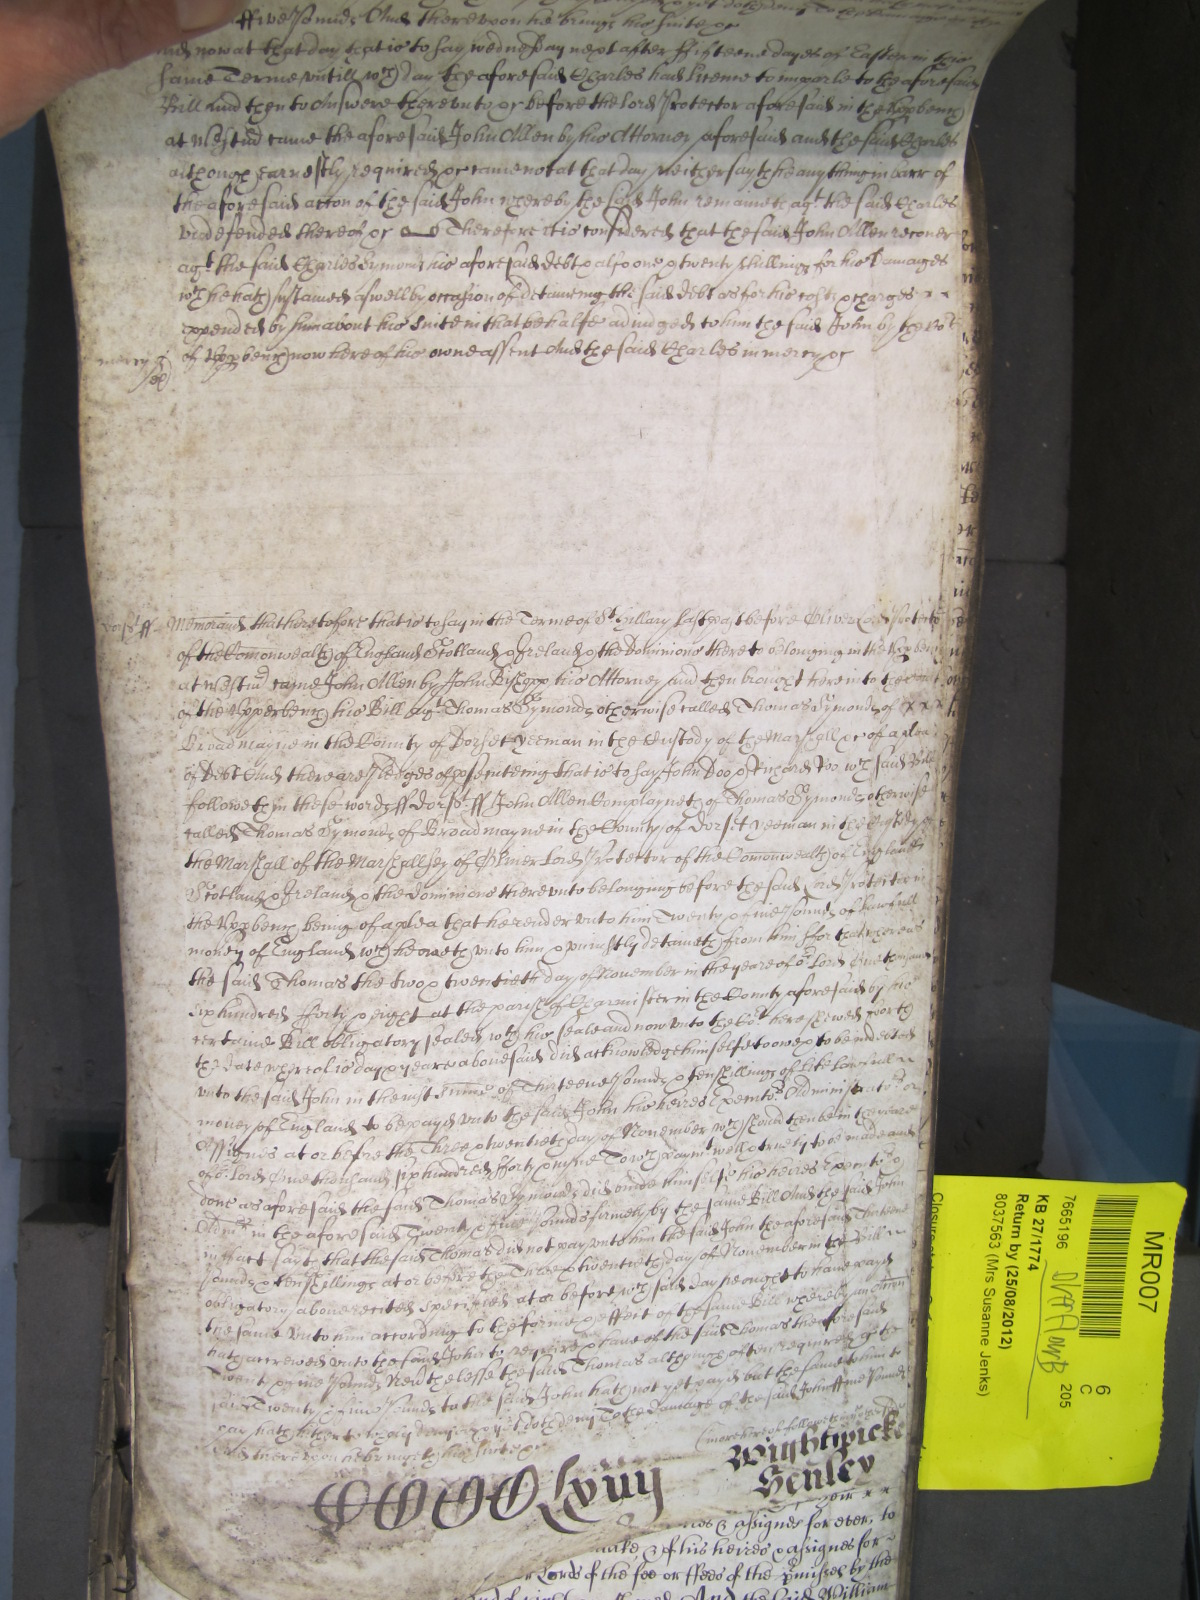 ffive Pounds And thereupon he brings his suite &c
And now at that day that is to say wednesday next after ffifteene dayes of Easter in this
same Terme untill wch day the aforesaid Charles had licence to imparle to the aforesaid
Bill and then to Answere thereunto &c before the Lord Protector aforesaid in the Upp bench
at Westmr came the aforesaid John Allen by his Attorney aforesaid and the said Charles
although earnestly required &c came not at that day neither sayth he any thing in barr of
the aforesaid accon of the said John whereby the said John remaineth agt the said Charles
undefended thereof &c Therefore it is considered that the said John Allen recover
agt the said Charles Symonds his aforesaid debt & also one & twenty shillings for his Damages
wch he hath susteined aswell by occasion of deteining the said debt as for his costs & charges
expended by him about his suite in that behalfe adiudged to him the said John by the Cort
of Upp bench now here of his owne assent And the said Charles in mercy &c
mercy &c
Dorst ff Memorand that heretofore that is to say in the Terme of St hillary last past before Oliver Lord Protector
of the Comonwealth of England Scotland & Ireland & the Dominions thereto belonging in the Upp bench
at Westmr came John Allen by John Bishopp his Attorney And then brought here into the Court
of the Upper bench his Bill agt Thomas Symonds otherwise called Thomas Symonds of
Broadmayne in the County of Dorset yeoman in the Custody of the Marshall &c of a plea
of Debt And there are pledges of prosecuting that is to say John Doo & Richard Roo wch said Bill
followeth in these words ff Dorst ff John Allen Complayneth of Thomas Symonds otherwise
called Thomas Symonds of Broadmayne in the County of Dorset yeoman in the Custody of
the Marshall of the Marshallsey of Oliver Lord Protector of the Comonwealth of England
Scotland & Ireland & the dominions thereunto belonging before the said Lord Protector in
the Upp bench being of a plea that he render unto him Twenty & five Pounds of lawfull
money of England wch he oweth unto him & uniustly deteineth from him ffor that whereas
the said Thomas the two & twentieth day of November in the yeare of or Lord One thousand
six hundred fforty & eight at the parish of Charmister in the County aforesaid by his
certaine Bill obligatory sealed wth his seale and now unto the Cort here shewed forth
the date whereof is day & yeare abovesaid did acknowledge himselfe to owe & to be indebted
unto the said John in the iust summe of Thirteene Pounds & ten shillings of like lawfull
money of England to be payd unto the said John his heires Executors Administrators or
Assignes at or before the Three & twentieth day of November wch should then be in the yeare
of or Lord One thousand six hundred fforty & nyne To wch paymt well & truely to be made and
done as aforesaid the said Thomas Symonds did binde himselfe his heires Executors &
Admrs in the aforesaid Twenty & five Pounds firmely by the same Bill And the said John
in fact sayth that the said Thomas did not pay unto him the said John the aforesaid Thirteene
Pounds & ten shillings at or before the Three & twentieth day of November in the Bill
obligatory above recited specified at or before wch said day he ought to have payd
the same unto him according to the forme & effect of the same Bill whereby an Accon
hath accrewed unto the said John to require & have of the said Thomas the aforesaid
Twenty & five Pounds Neverthelesse the said Thomas although often required &c the
said Twenty & five Pounds to the said John hath not yet payd but the same to him to
pay hath hitherto denyed & yet doth deny To the damage of the said John ffive Pounds
And thereupon he brings his suite &c
(more hereof followeth
Wightwicke
Henley
CCCCLxviij
assignes for ever, to
& of his heires & assignes for
Lords of the fee or ffees of the pmisses by the
And the said William
MR007
6
C
205
7665196
KB 27/1774
Return by (25/08/2012)
8037563 (Mrs Susanne Jenks)